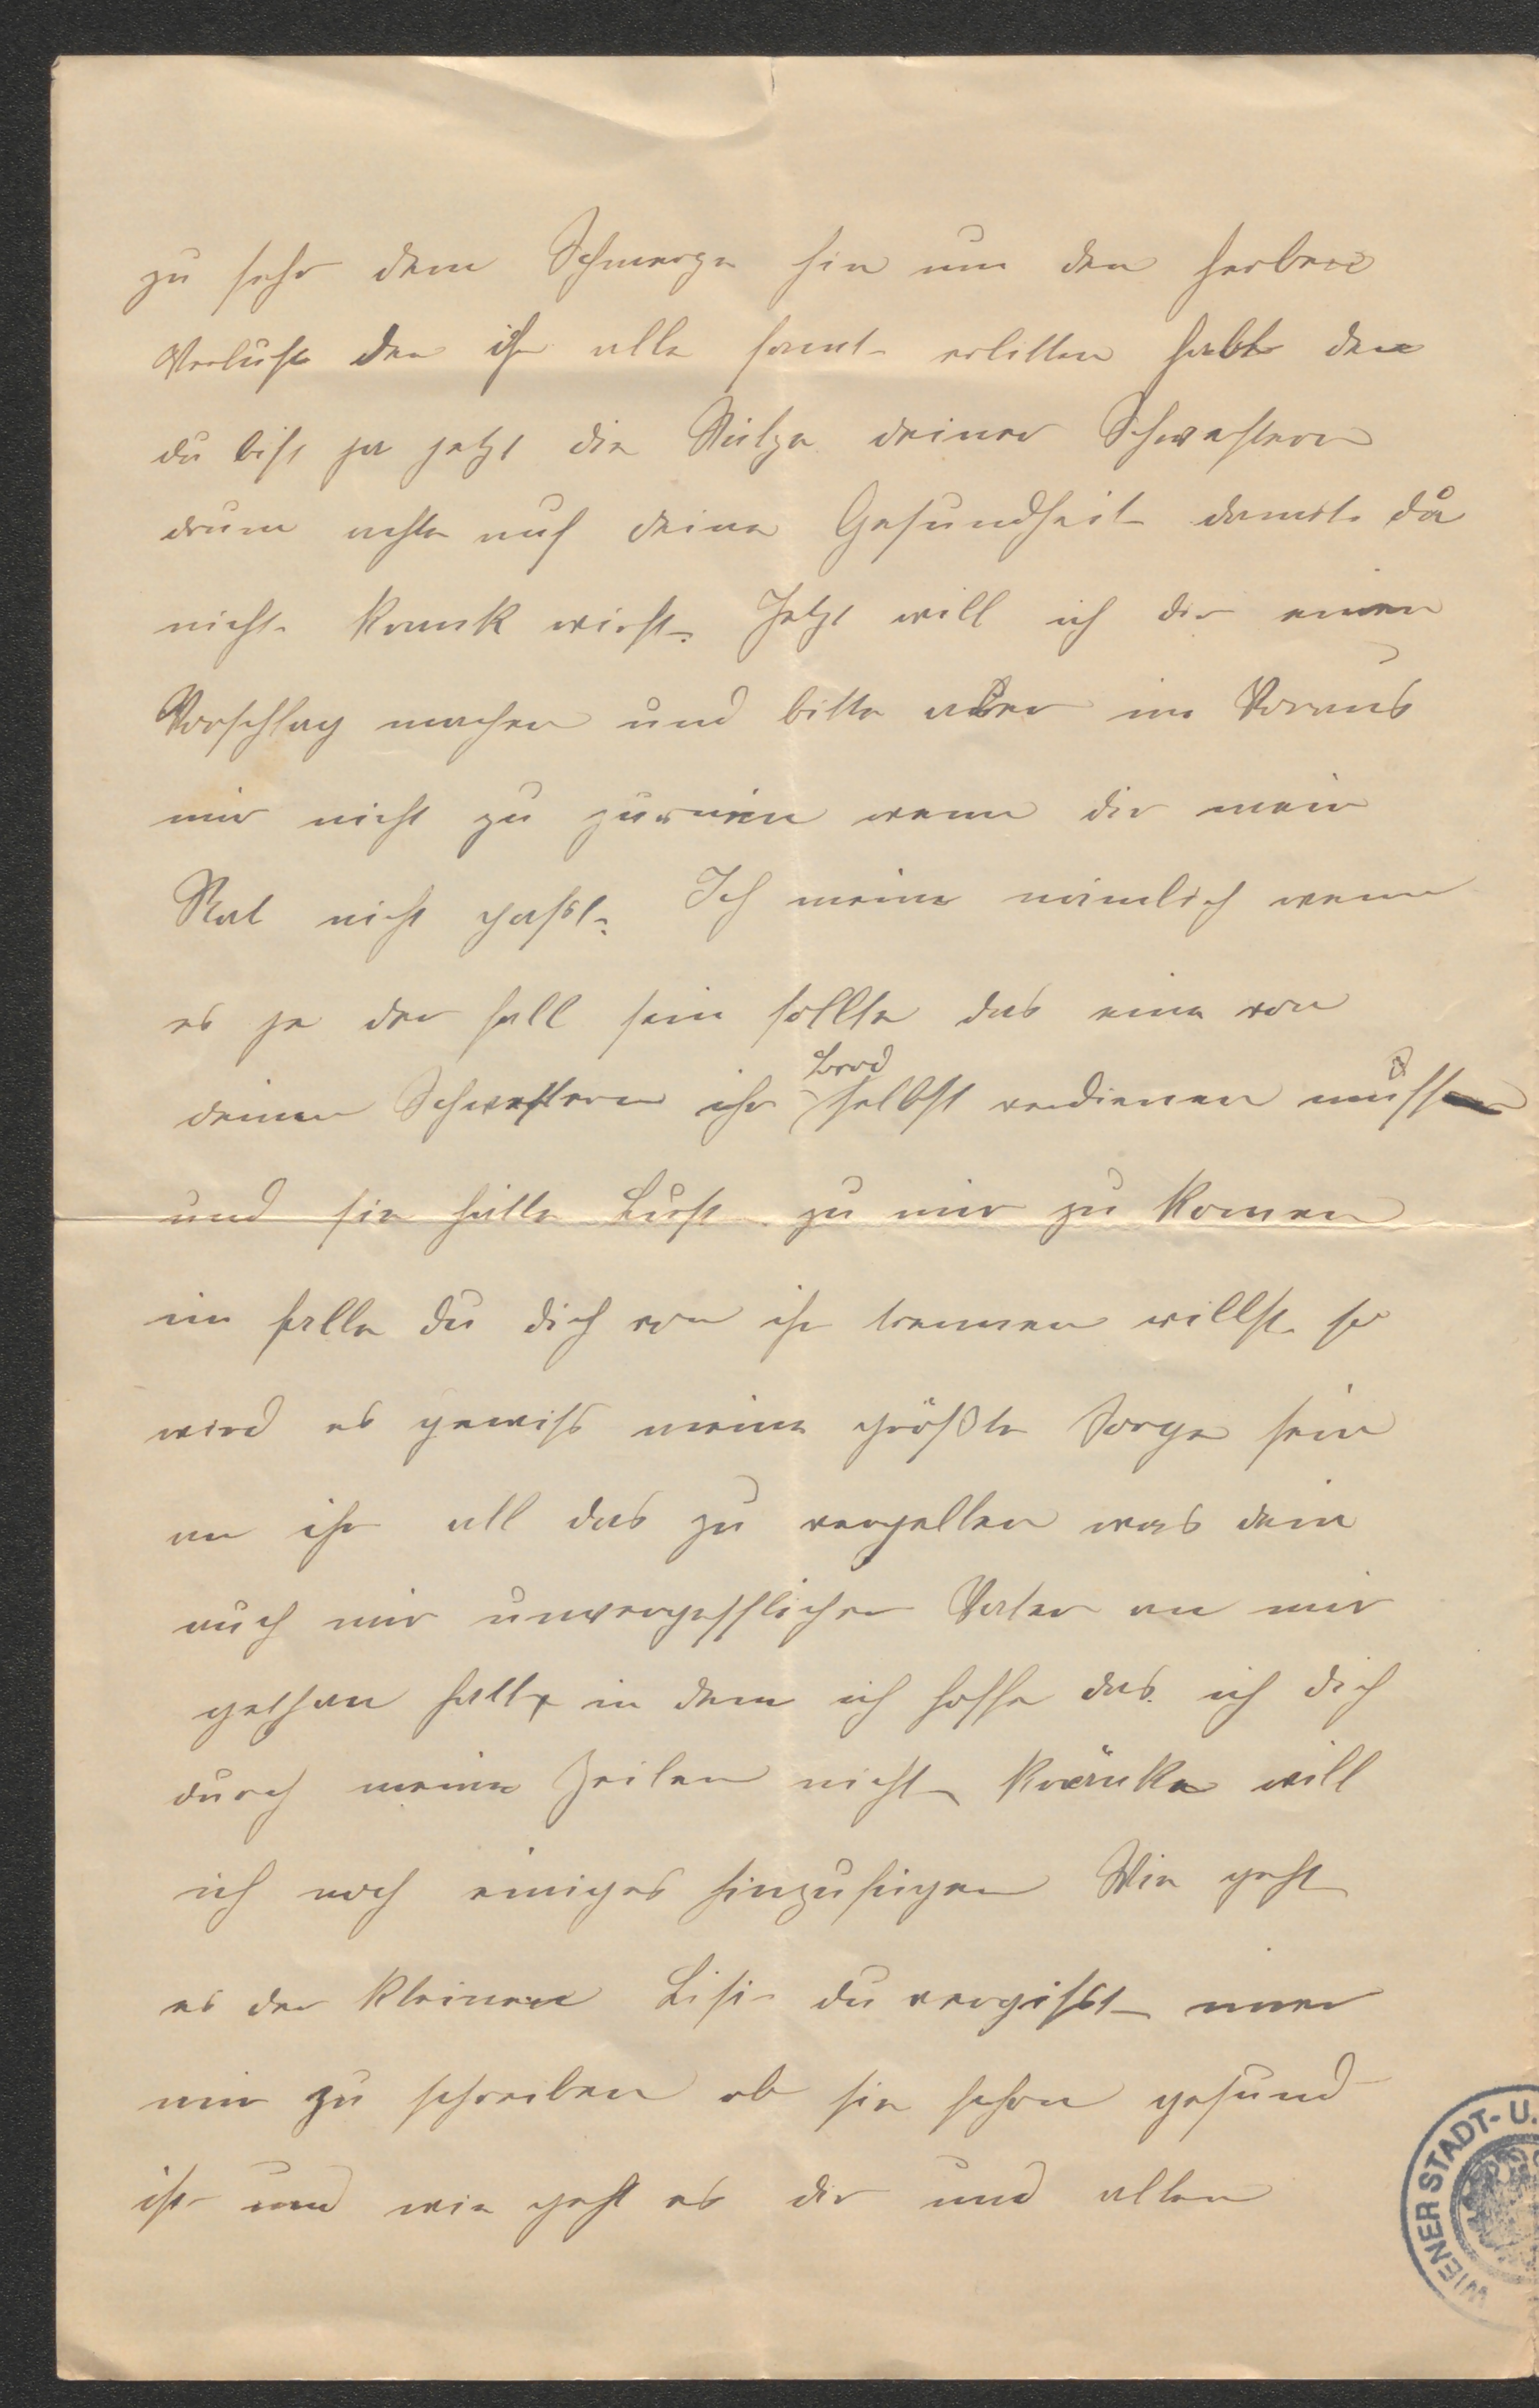 zu sehr dem Schmerze hin um den herben
Verlust den ihr alle samt erlitten habt den
du bist ja jetzt die Stütze deiner Schwestern
drum achte auf deine Gesundheit damit du
nicht krank wirst. Jetzt will ich dir einen
Vorschlag machen und bitte aber im Voraus
mir nicht zu zürnen wenn dir mein
Rat nicht passt. Ich meine nämlich wenn
es je der fall sein sollte das eine von
deinen Schwestern ihr Brod selbst verdienen müsse
und sie hätte Lust zu mir zu komen
im falle du dich von ihr trennen willst so
wird es gewiss meine größte Sorge sein
an ihr all das zu vergelten was dein
auch mir unvergesslicher Vater an mir
gethan hatte in dem ich hoffe das ich dich
durch meine Zeilen nicht kränke will
ich noch einiges hinzufügen Wie geht
es der kleinen Lisi du vergisst imer
mir zu schreiben ob sie schon gesund
ist und wie geht es dir und allen
WIENER STADT- U.